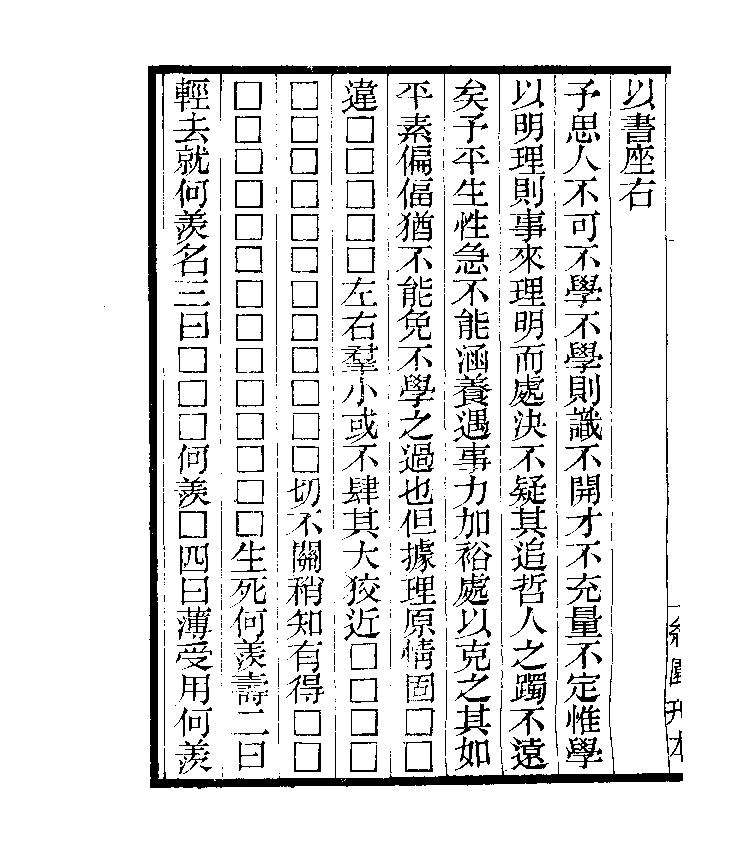 約園刊本
以書座右
予思人不可不學不學則識不開才不充量不定惟學
以明理則事來理明而處決不疑其追哲人之躅不遠
矣予平生性急不能涵養遇事力加裕處以克之其如
平素偏偪猶不能免不學之過也但據理原情固□□
違□□□□□左右羣小或不肆其大狡近□□□□
□□□□□□□□□□□□切不關稍知有得□□
□□□□□□□□□□□□□□生死何羨壽二曰
輕去就何羨名三曰□□□何羨□四曰薄受用何羨